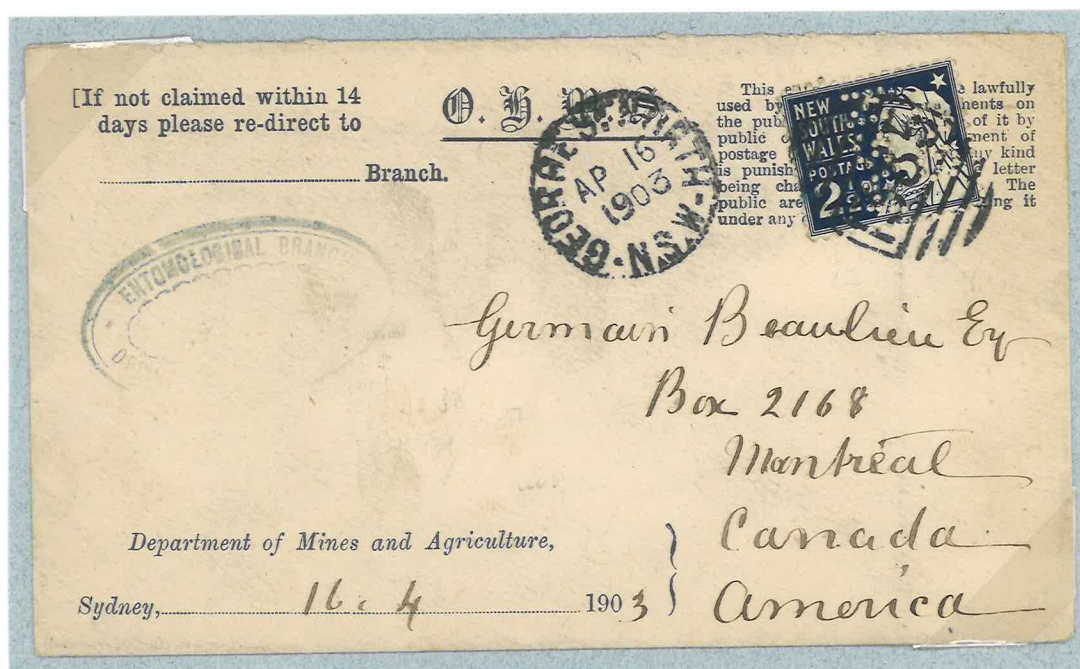 [If not claimed within 14
days please re-direct to
Branch.
O. H. M. S.
This lawfully
used by ments on
the pub of it by
public ment of
postage ny kind
is punish letter
being cha The
public are ing it
under any
NEW
SOUTH
WALES
POSTAGE
2
GEORGE ST. NORTH. N.S.W.
AP 16
1903
ENTOMOLOGICAL BRANCH
Germain Beaulieu Eq
Box 2168
Montréal
Canada
America
Department of Mines and Agriculture,
Sydney, 16. 4 1903